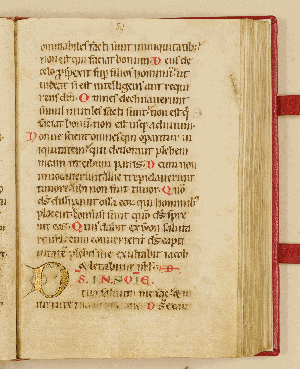 ominabiles facti sunt in iniquitatib;
non est qui faciat bonum. Deus de
celo prospexit sup filios hominum ut
uideat si est intelligens aut requi
rens dm. Omnes declinauerunt
simul inutiles facti sunt non est q
faciat bonu non est usq; ad unum.
Nonne scient omnes qui operantur
iniquitatem qui deuorant plebem
meam ut cibum panis. Deum non
inuocauerunt illic trepidauerunt
timore ubi non fuit timor. Quo
ds dissipauit ossa eor qui hominib;
placent confusi sunt quo ds spre
uit eos. Quis dabit ex syon saluta
re isrl cum conuerterit ds capti
uitate plebis sue exultabit iacob
& letabitur isrl.
DS. IN NOIE.
tuo saluum me fac & in
uirtute tua me. Ds exau